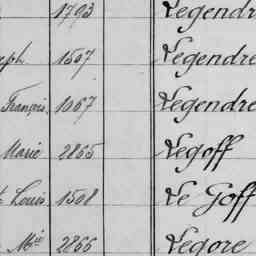 1793 Legendr
eph 1507 Legendre
François 1067 Legendre
Marie 2865 Legoff
t Louis 1508 Le Goff
Mie 2866 Legore